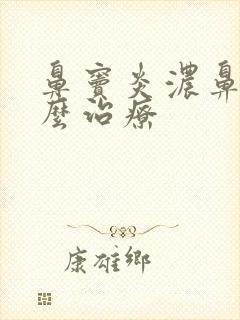 鼻窦炎濃鼻
麼治療
康雄鄉